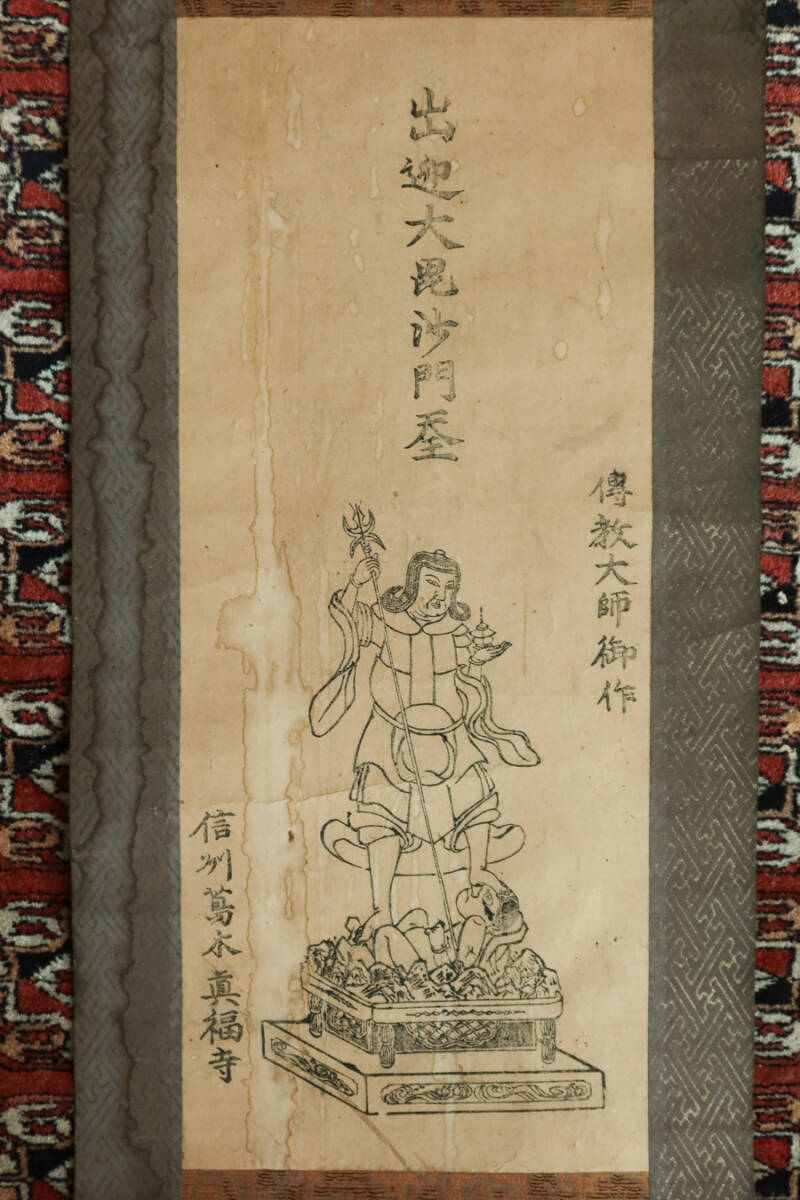 出迎大毘沙門天王
傳教大師御作
信州蔦木眞福寺